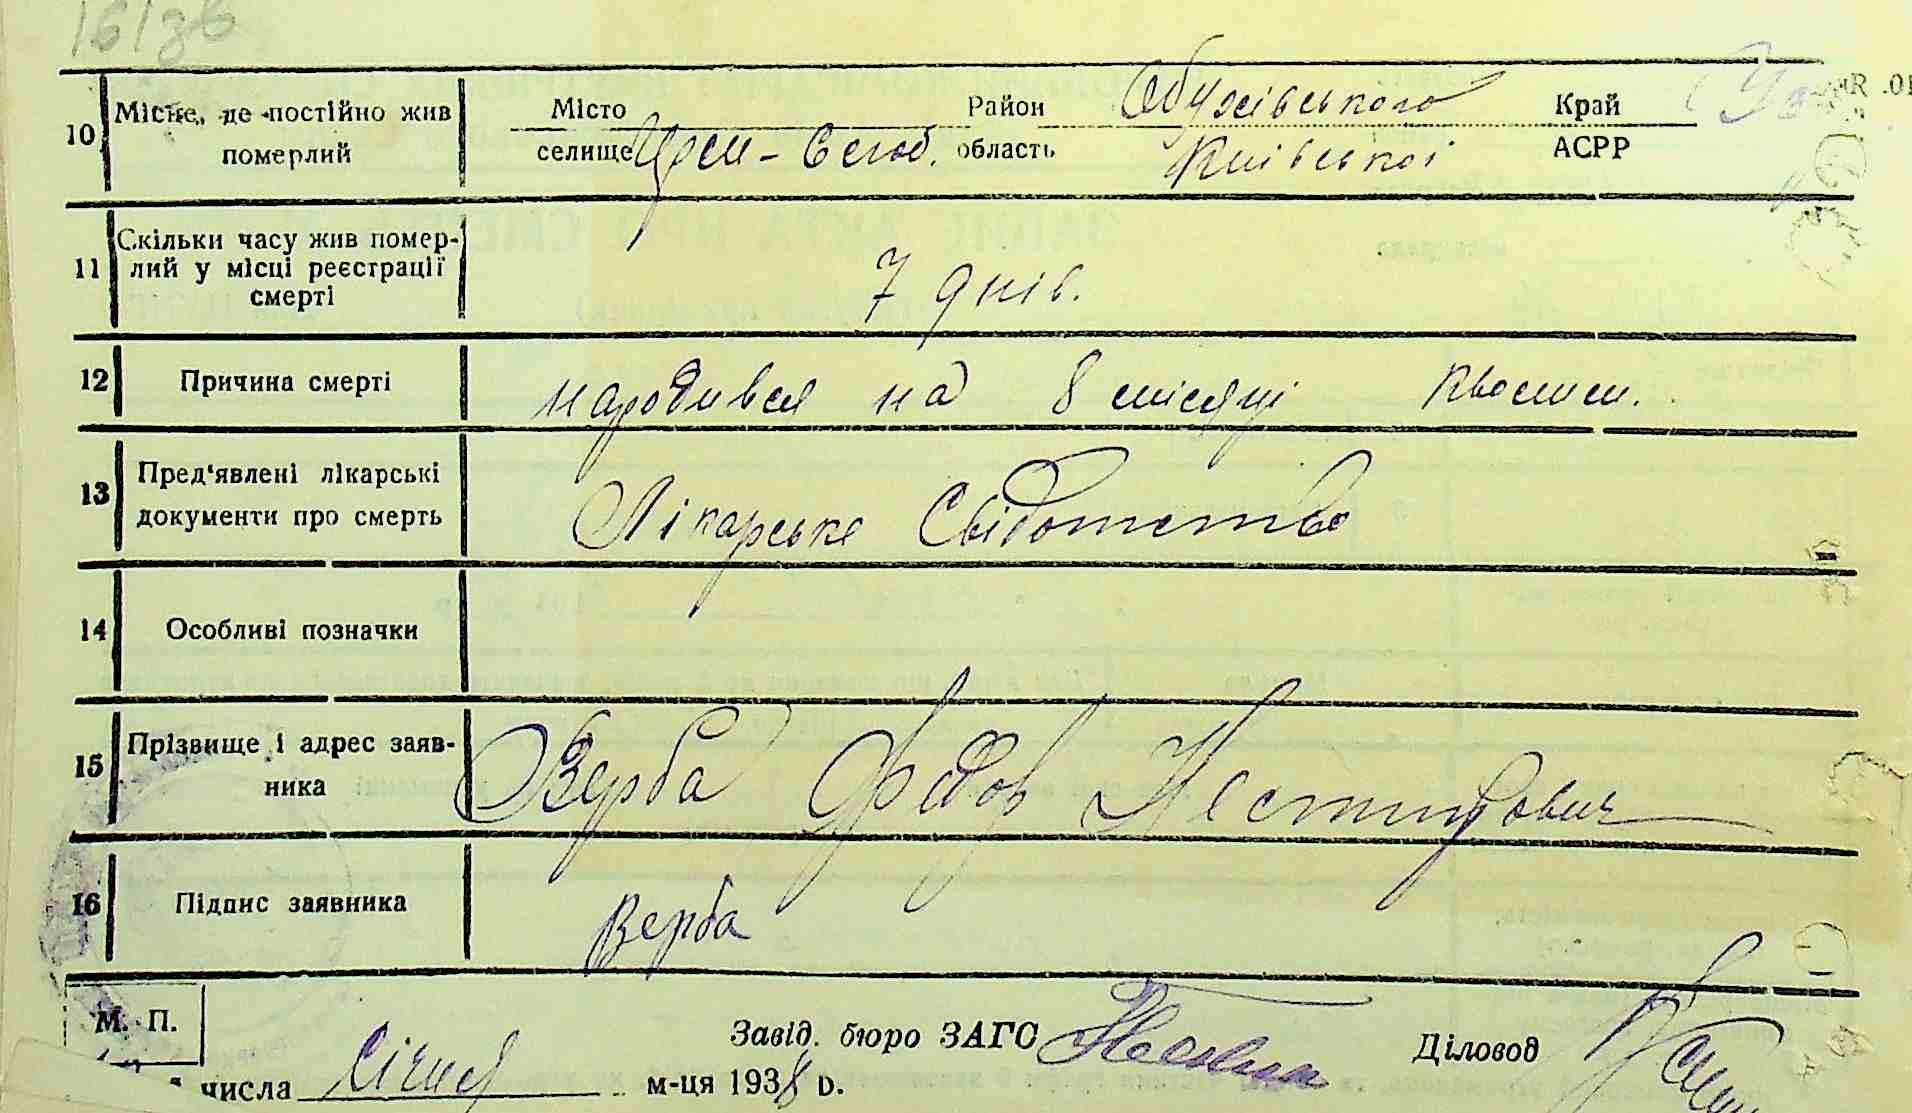 10 Місце, де постійно жив померлий
Місто Район Обухівського Край
селище область Київської АСРР
11 Скільки часу жив помер-
лий у місці реєстрації
смерті
7 днів.
12 Причина смерті
народився на 8 місяці
13 Пред'явлені лікарські
документи про смерть
Лікарське Свідотство
14 Особливі позначки
15 Прізвище і адрес заяв-
ника
Верба Федор Нестирович
16 Підпис заявника
Верба
М. П.
Завід. бюро ЗАГС
Діловод
числа Січня м-ця 1938 р.